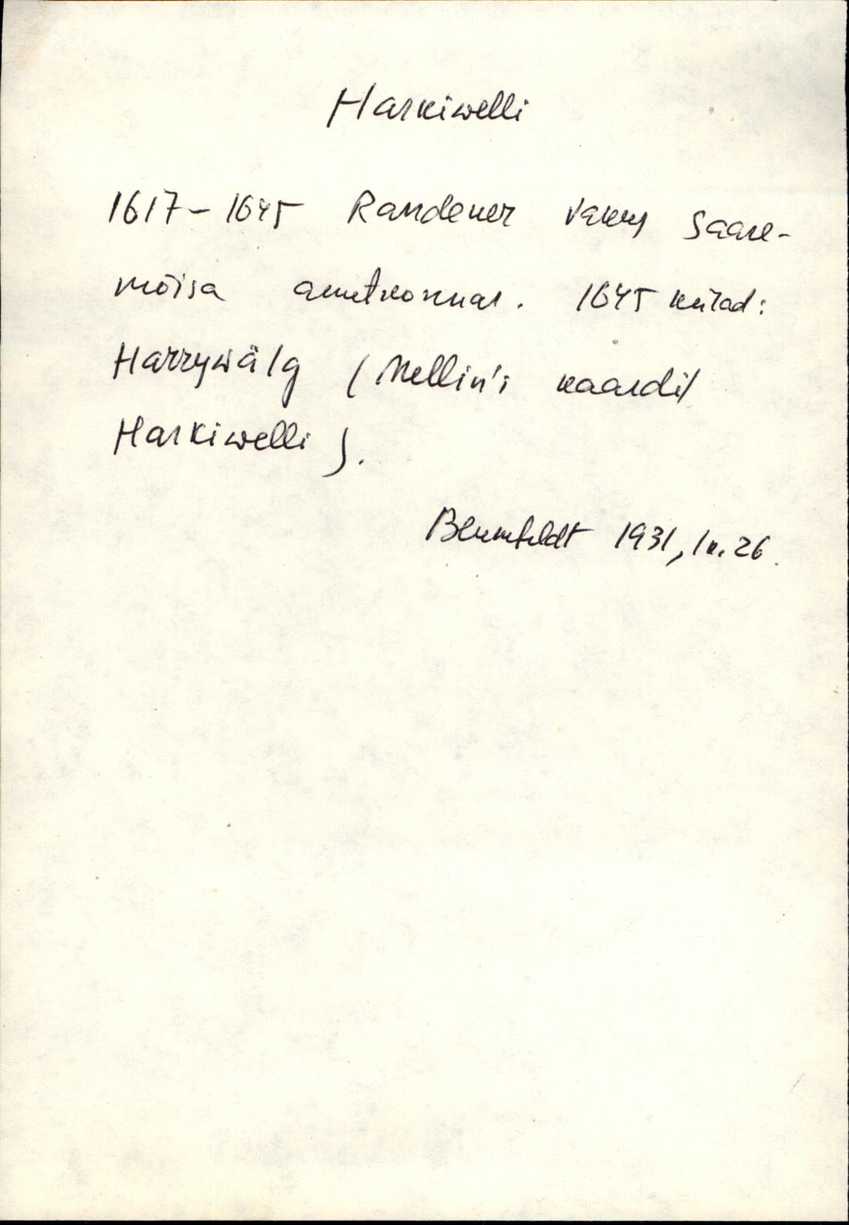 Harkiwelli
1617-1645 Randener vakus Saare-
mõisa ametkonnas. 1645 külad:
Harrywälg (Mellin'i kaardil
Harkiwelli).
Blumfeldt 1931, lk. 26.